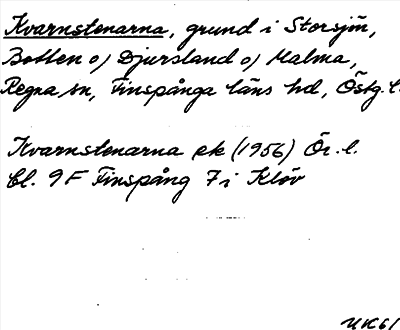 Kvarnstenarna, grund i Storsjön,
Botten o) Djursland o) Malma,
Regna sn, Finspånga läns hd, Östg. l.
Kvarnstenarna ek (1956) Ör. l.
bl. 9 F Finspång 7 i Klöv